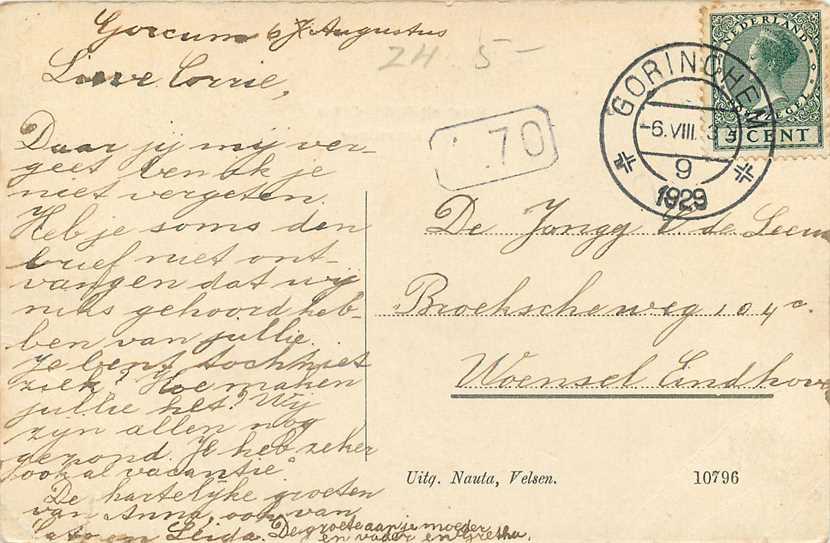 Gorcum 6 Augustus
24 5-
Lieve Corrie,
Daar jij mij ver-
geet ben ik je
niet vergeten.
Heb je soms den
brief niet ont-
vangen dat wij
niks gehoord heb-
ben van jullie.
Je bent toch niet
ziek? Hoe maken
jullie het? Wij
zijn allen nog
gezond. Je heb zeker
ook al vacantie.
De hartelijke groeten
van Anna, ook van
en Leida. De groete aan je moeder
en vader en Gretha.
70
GORINCHEM
-6.VIII. 3
9
1929
NEDERLAND
5 CENT
De Jongg v de Leeu
Broekscheweg 104c.
Woensel Eindhove
Uitg. Nauta, Velsen.
10796